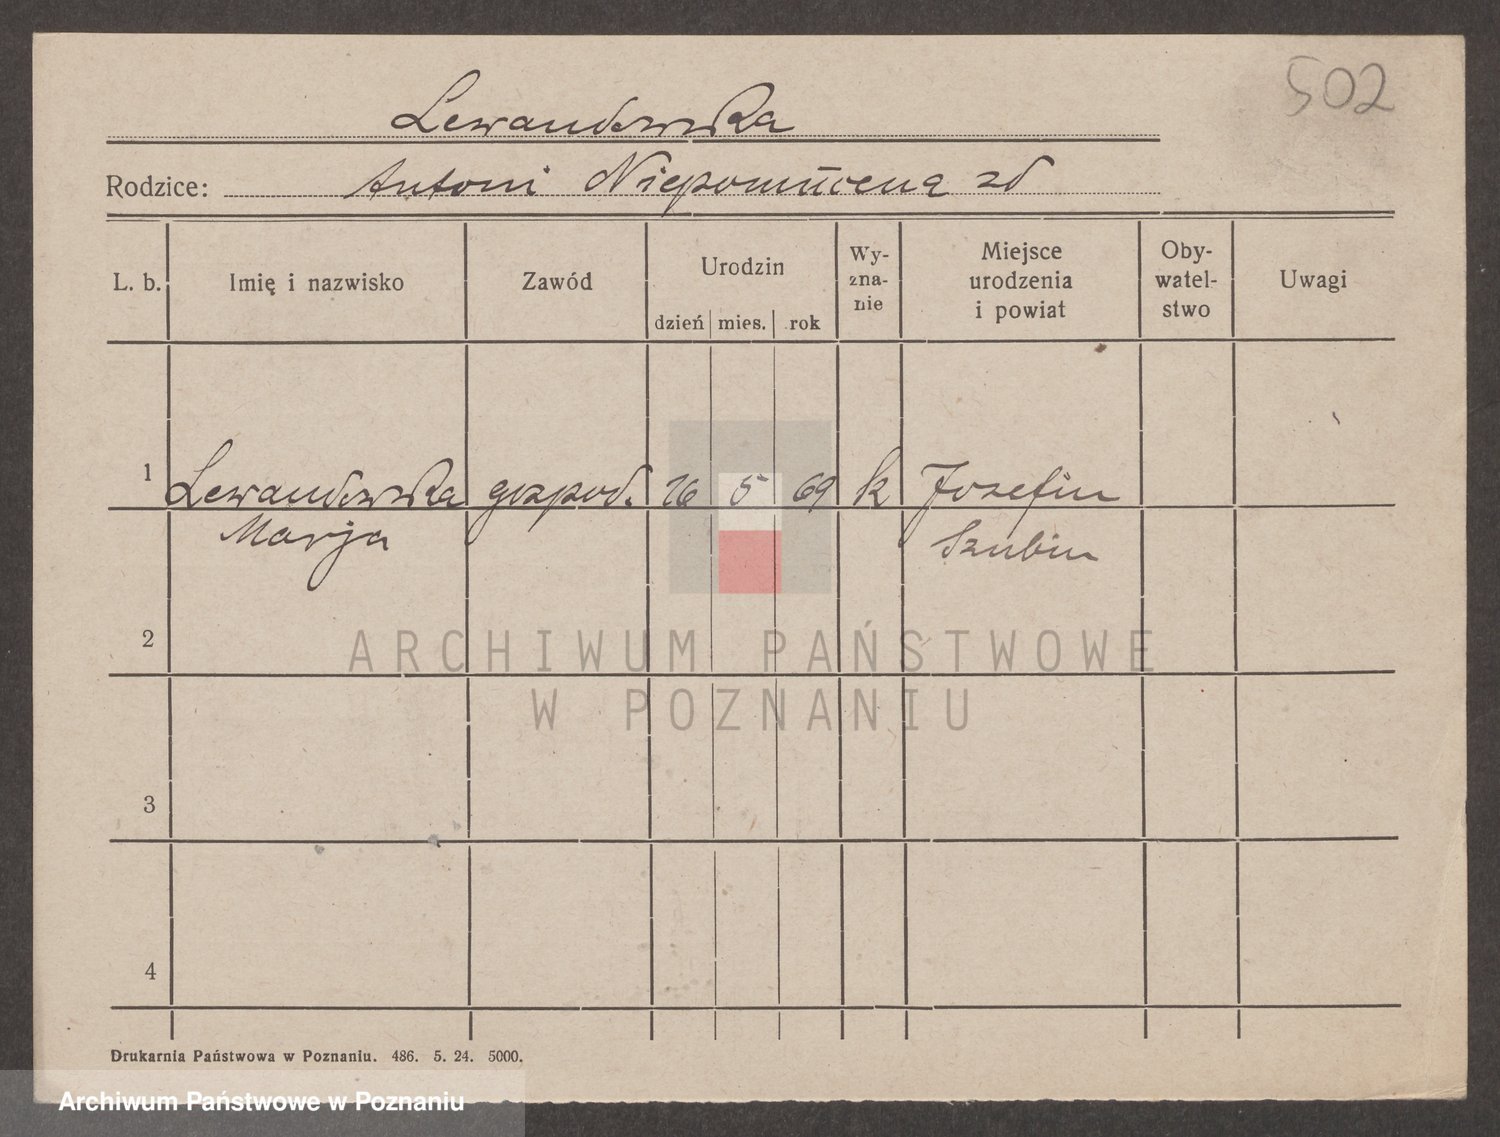 502
Lewandowska
Rodzice: Antoni Niepomucena zd
L. b. Imię i nazwisko Zawód Urodzin dzień mies. rok Wy-zna-nie Miejsce urodzenia i powiat Oby-watel-stwo Uwagi
1 Lewandowska gospod. 26 5 69 k Josefin
Marja Szubin
2
3
4
ARCHIWUM PAŃSTWOWE
W POZNANIU
Drukarnia Państwowa w Poznaniu. 486. 5. 24. 5000.
Archiwum Państwowe w Poznaniu